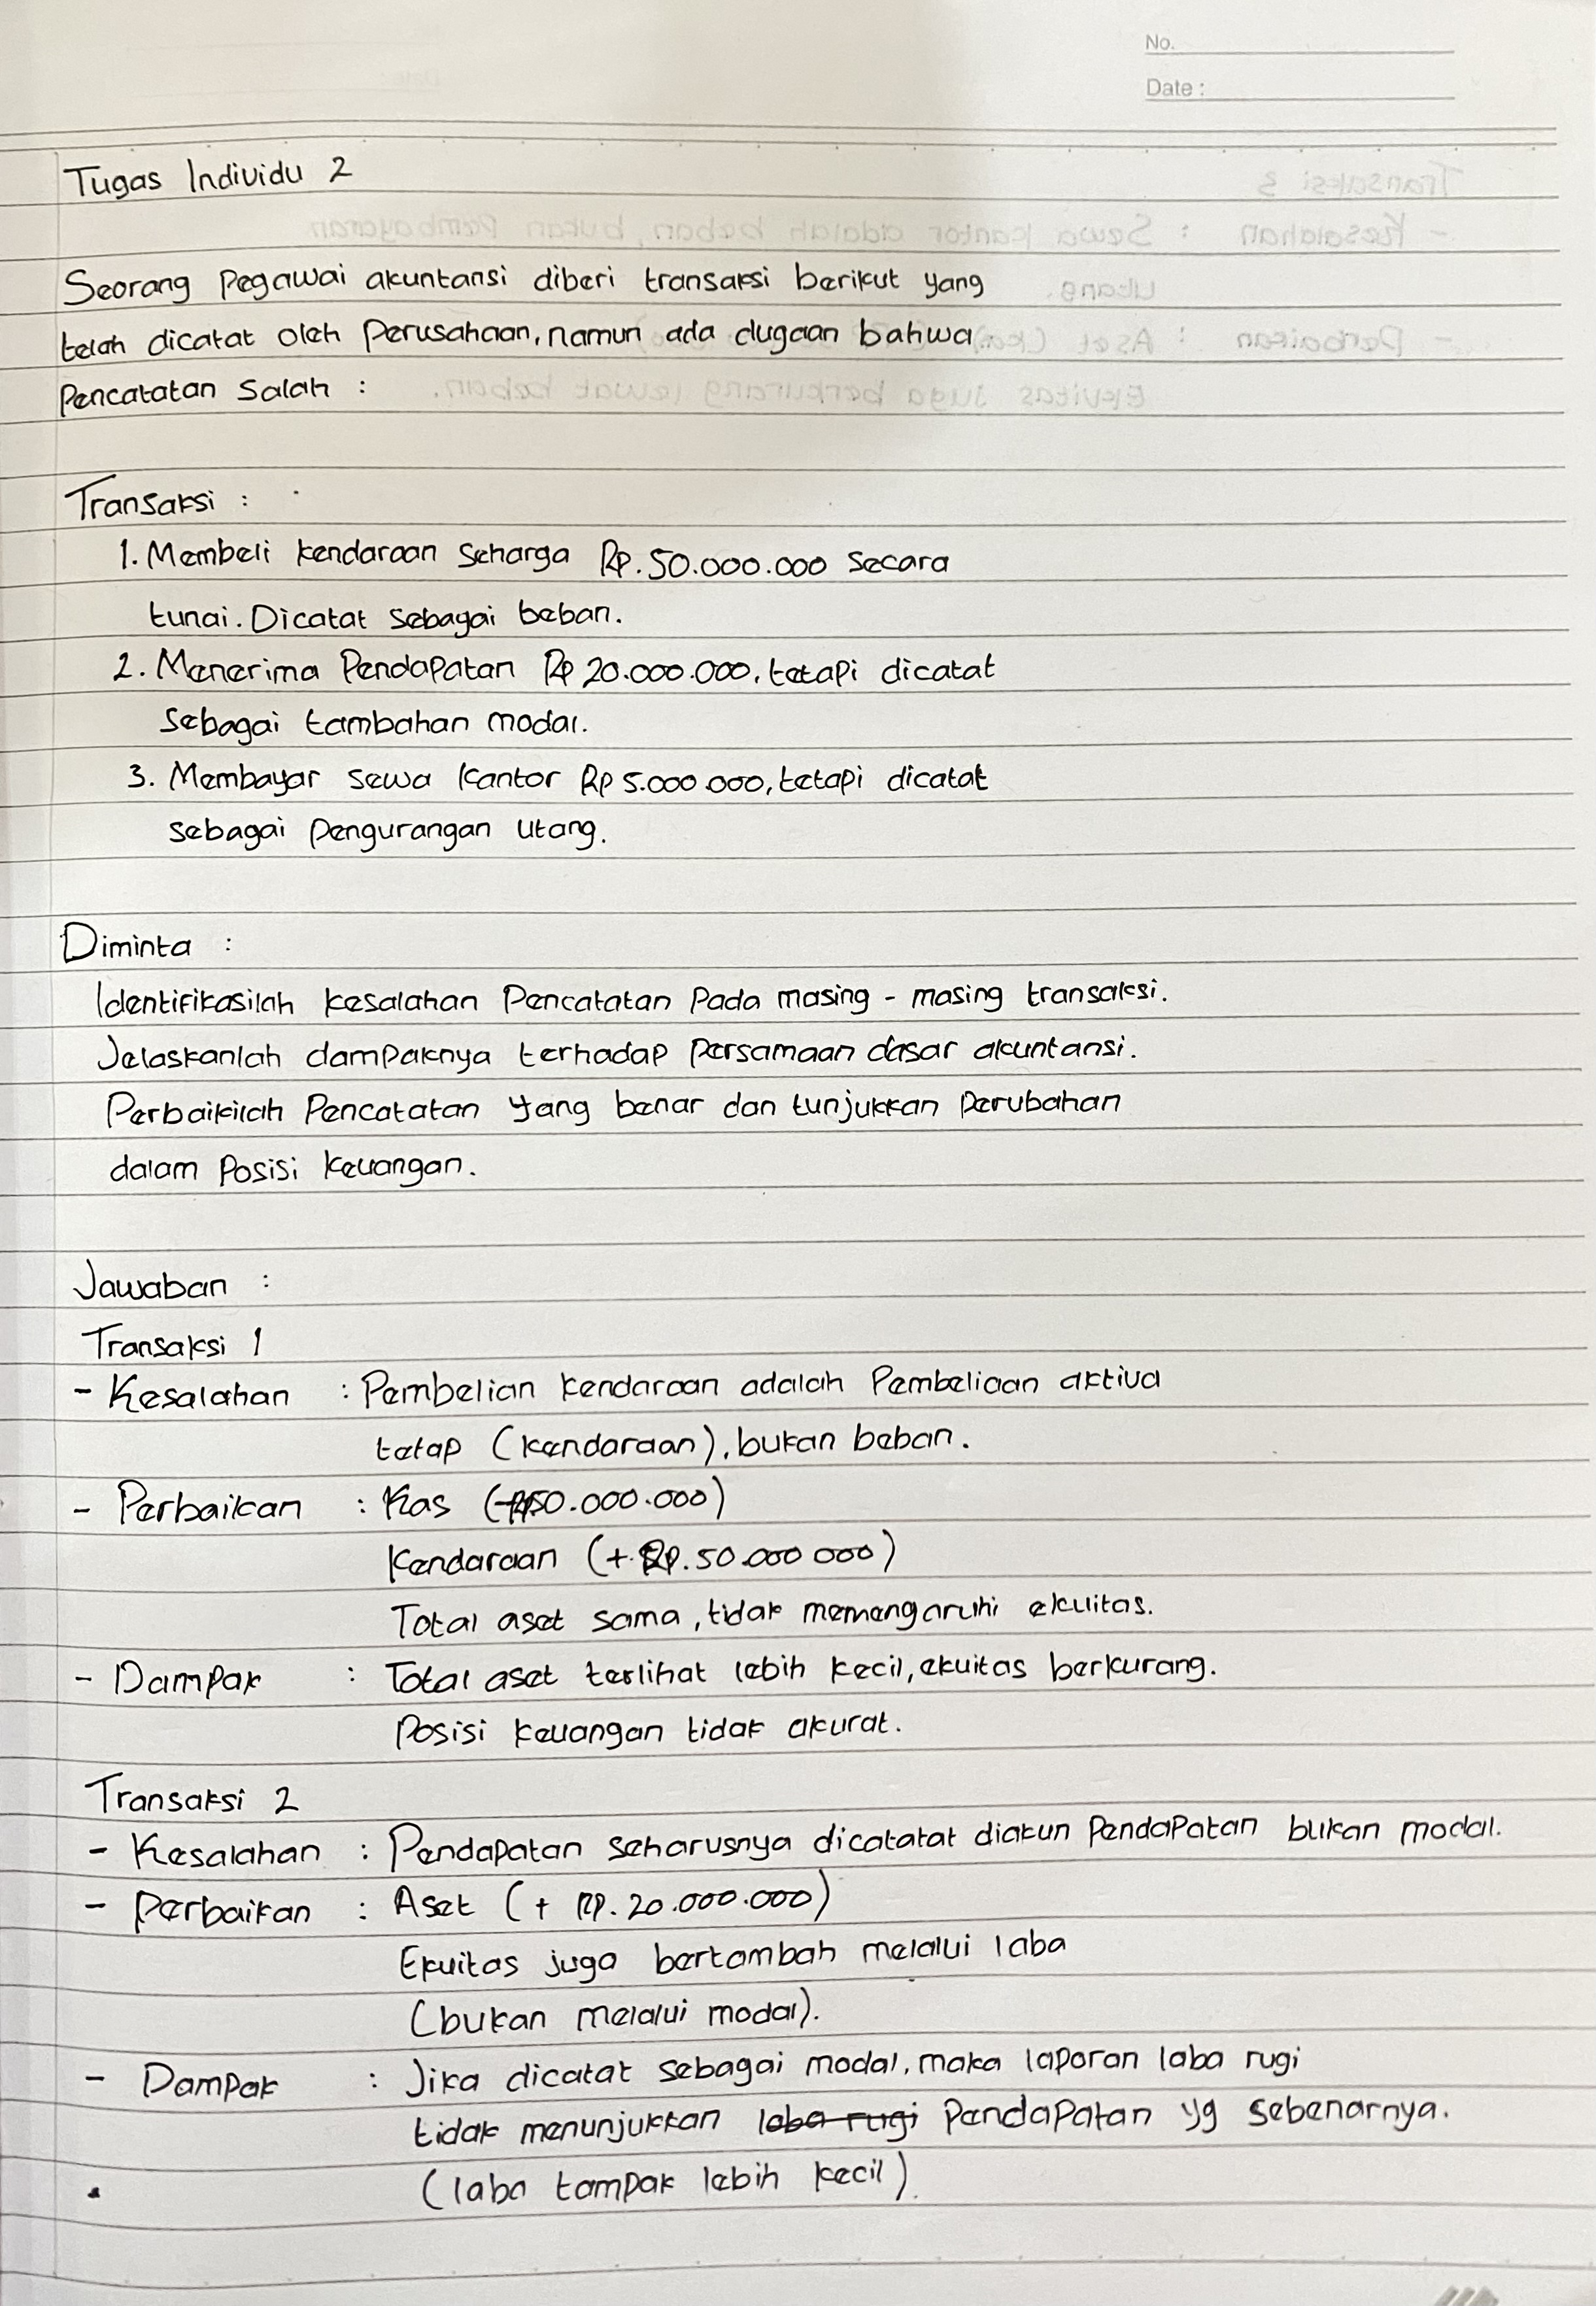 No.
Date :
Tugas Individu 2
Seorang Pegawai akuntansi diberi transaksi berikut yang
telah dicatat oleh Perusahaan, namun ada dugaan bahwa
Pencatatan Salah :
Transaksi :
1. Membeli kendaraan Seharga Rp. 50.000.000 Secara
tunai. Dicatat sebagai beban.
2. Menerima Pendapatan Rp 20.000.000, tetapi dicatat
sebagai tambahan modal.
3. Membayar sewa Kantor Rp 5.000.000, tetapi dicatat
sebagai pengurangan utang.
Diminta :
Identifikasilah kesalahan Pencatatan Pada masing - masing transaksi.
Jelaskanlah dampaknya terhadap Persamaan dasar akuntansi.
Perbaikilah Pencatatan yang benar dan tunjukkan Perubahan
dalam Posisi keuangan.
Jawaban :
Transaksi 1
- Kesalahan : Pembelian kendaraan adalah Pembeliaan aktiva
tetap (kendaraan), bukan beban.
- Perbaikan : Kas (-50.000.000)
Kendaraan (+ Rp. 50.000 000)
Total aset sama, tidak memengaruhi ekuitas.
- Dampak : Total aset terlihat lebih kecil, ekuitas berkurang.
Posisi keuangan tidak akurat.
Transaksi 2
- Kesalahan : Pendapatan seharusnya dicatatat diakun Pendapatan bukan modal.
- Perbaikan : Aset (+ Rp. 20.000.000)
Ekuitas juga bertambah melalui laba
(bukan melalui modal).
- Dampak : Jika dicatat sebagai modal, maka laporan laba rugi
tidak menunjukkan laba rugi Pendapatan yg sebenarnya.
(laba tampak lebih kecil).